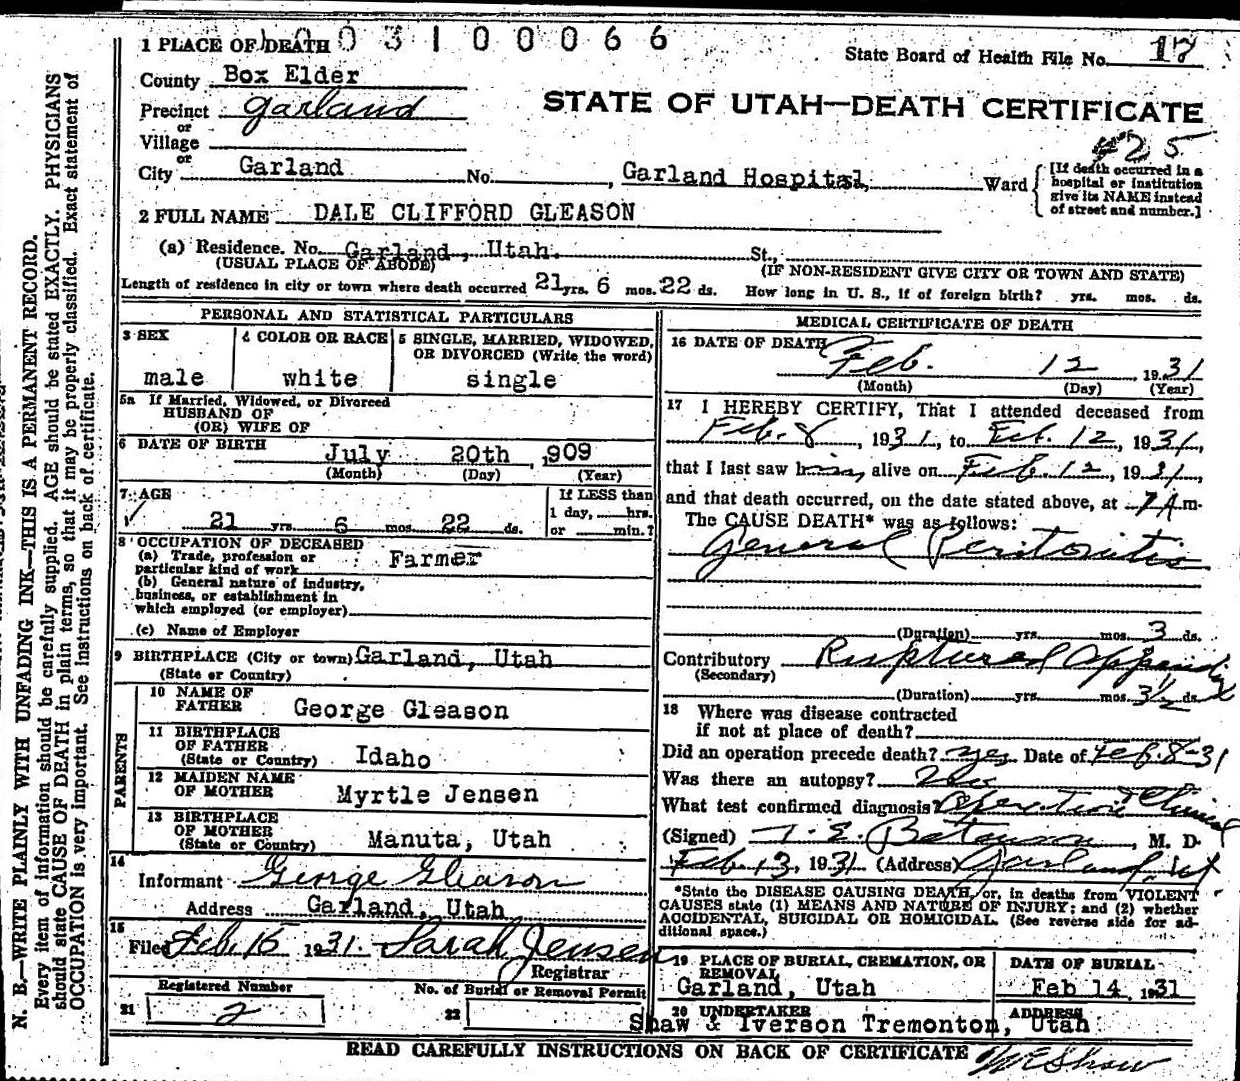 003100066
1 PLACE OF DEATH
State Board of Health File No. 17
County Box Elder
STATE OF UTAH—DEATH CERTIFICATE
Precinct Garland
or
Village
#25
or
City Garland No. , Garland Hospital, Ward
[If death occurred in a
hospital or institution
give its NAME instead
of street and number.]
2 FULL NAME DALE CLIFFORD GLEASON
(a) Residence. No. Garland, Utah. St.,
(USUAL PLACE OF ABODE) (IF NON-RESIDENT GIVE CITY OR TOWN AND STATE)
Length of residence in city or town where death occurred 21 yrs. 6 mos. 22 ds. How long in U. S., if of foreign birth? yrs. mos. ds.
PERSONAL AND STATISTICAL PARTICULARS
3 SEX
male
4 COLOR OR RACE
white
5 SINGLE, MARRIED, WIDOWED,
OR DIVORCED (Write the word)
single
5a If Married, Widowed, or Divorced
HUSBAND OF
(OR) WIFE OF
6 DATE OF BIRTH
July 20th , ,909
(Month) (Day) (Year)
7 AGE
21 yrs. 6 mos. 22 ds.
If LESS than
1 day, hrs.
or min.?
8 OCCUPATION OF DECEASED
(a) Trade, profession or
particular kind of work Farmer
(b) General nature of industry,
business, or establishment in
which employed (or employer)
(c) Name of Employer
9 BIRTHPLACE (City or town) Garland, Utah
(State or Country)
PARENTS
10 NAME OF
FATHER George Gleason
11 BIRTHPLACE
OF FATHER
(State or Country) Idaho
12 MAIDEN NAME
OF MOTHER Myrtle Jensen
13 BIRTHPLACE
OF MOTHER
(State or Country) Manuta, Utah
14
Informant George Gleason
Address Garland, Utah
15
Filed Feb. 15 1931. Sarah Jensen
Registrar
Registered Number
21 2
No. of Burial or Removal Permit
22
MEDICAL CERTIFICATE OF DEATH
16 DATE OF DEATH
Feb. 12 1931
(Month) (Day) (Year)
17 I HEREBY CERTIFY, That I attended deceased from
Feb. 8, 1931, to Feb. 12, 1931,
that I last saw him alive on Feb. 12, 1931,
and that death occurred, on the date stated above, at 7 A.m.
The CAUSE DEATH* was as follows:
General Peritonitis
(Duration) yrs. mos. 3 ds.
Contributory Ruptured Appendix
(Secondary)
(Duration) yrs. mos. 3½ ds.
18 Where was disease contracted
if not at place of death?
Did an operation precede death? yes Date of Feb. 8-31
Was there an autopsy? No
What test confirmed diagnosis? Operation & Clinical
(Signed) , M. D.
Feb. 13, 1931 (Address) Garland, Ut
*State the DISEASE CAUSING DEATH, or, in deaths from VIOLENT
CAUSES state (1) MEANS AND NATURE OF INJURY; and (2) whether
ACCIDENTAL, SUICIDAL OR HOMICIDAL. (See reverse side for ad-
ditional space.)
19 PLACE OF BURIAL, CREMATION, OR
REMOVAL
Garland, Utah
DATE OF BURIAL
Feb 14 1931
20 UNDERTAKER ADDRESS
Shaw & Iverson Tremonton, Utah
READ CAREFULLY INSTRUCTIONS ON BACK OF CERTIFICATE
N. B.—WRITE PLAINLY WITH UNFADING INK—THIS IS A PERMANENT RECORD.
Every item of information should be carefully supplied. AGE should be stated EXACTLY. PHYSICIANS
should state CAUSE OF DEATH in plain terms, so that it may be properly classified. Exact statement of
OCCUPATION is very important. See instructions on back of certificate.